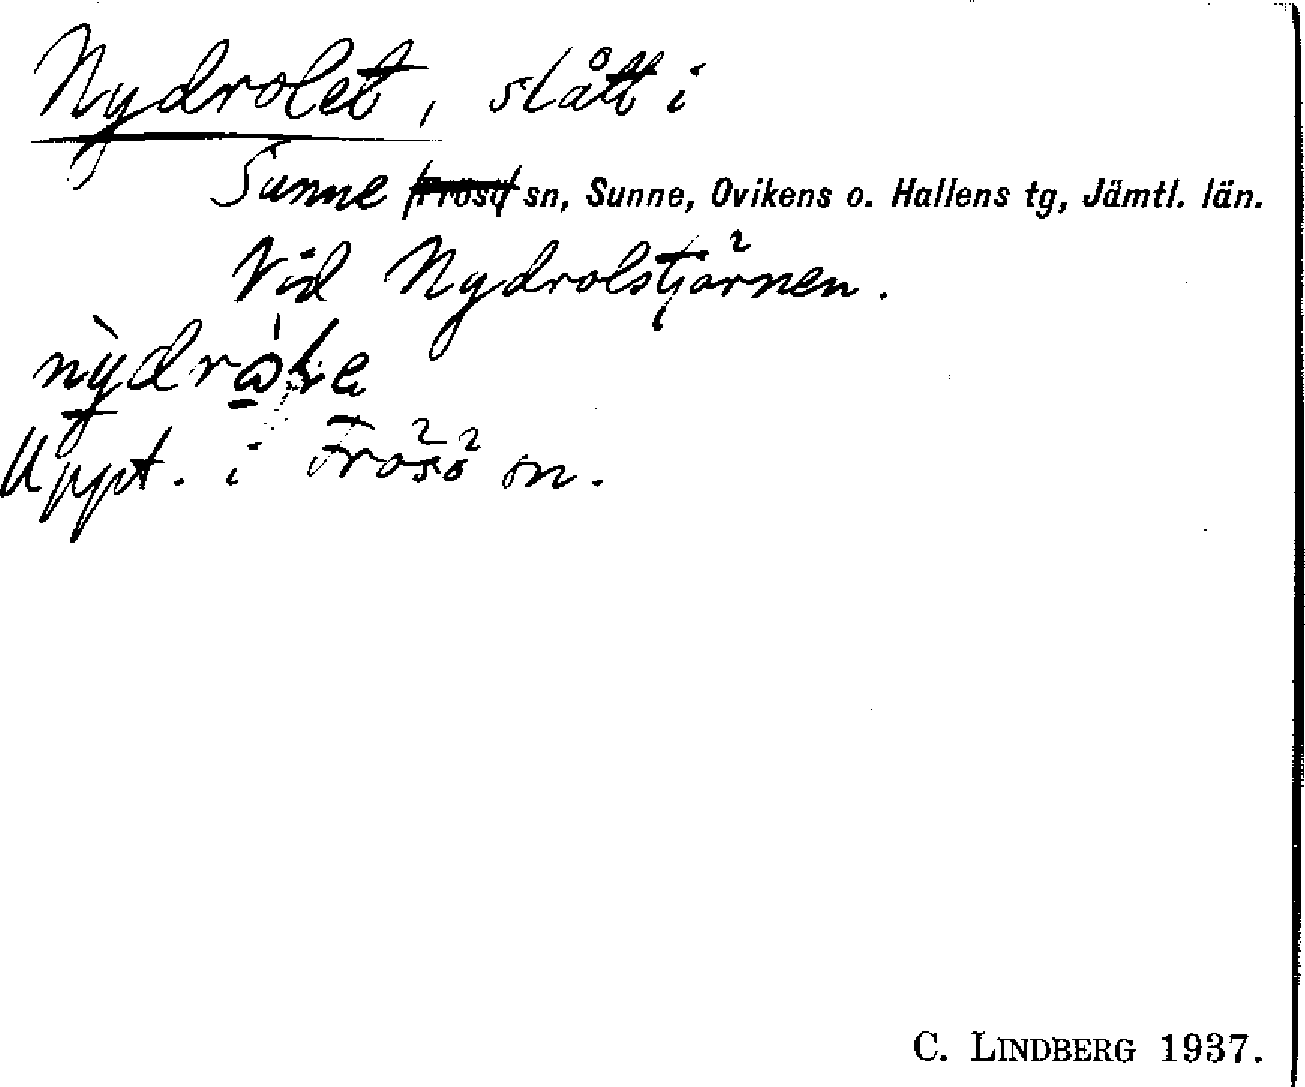 Nydrolet, slått i
Sunne Frösö sn, Sunne, Ovikens o. Hallens tg, Jämtl. län.
Vid Nydrolstjärnen.
Uppt. i Frösö sn.
C. LINDBERG 1937.